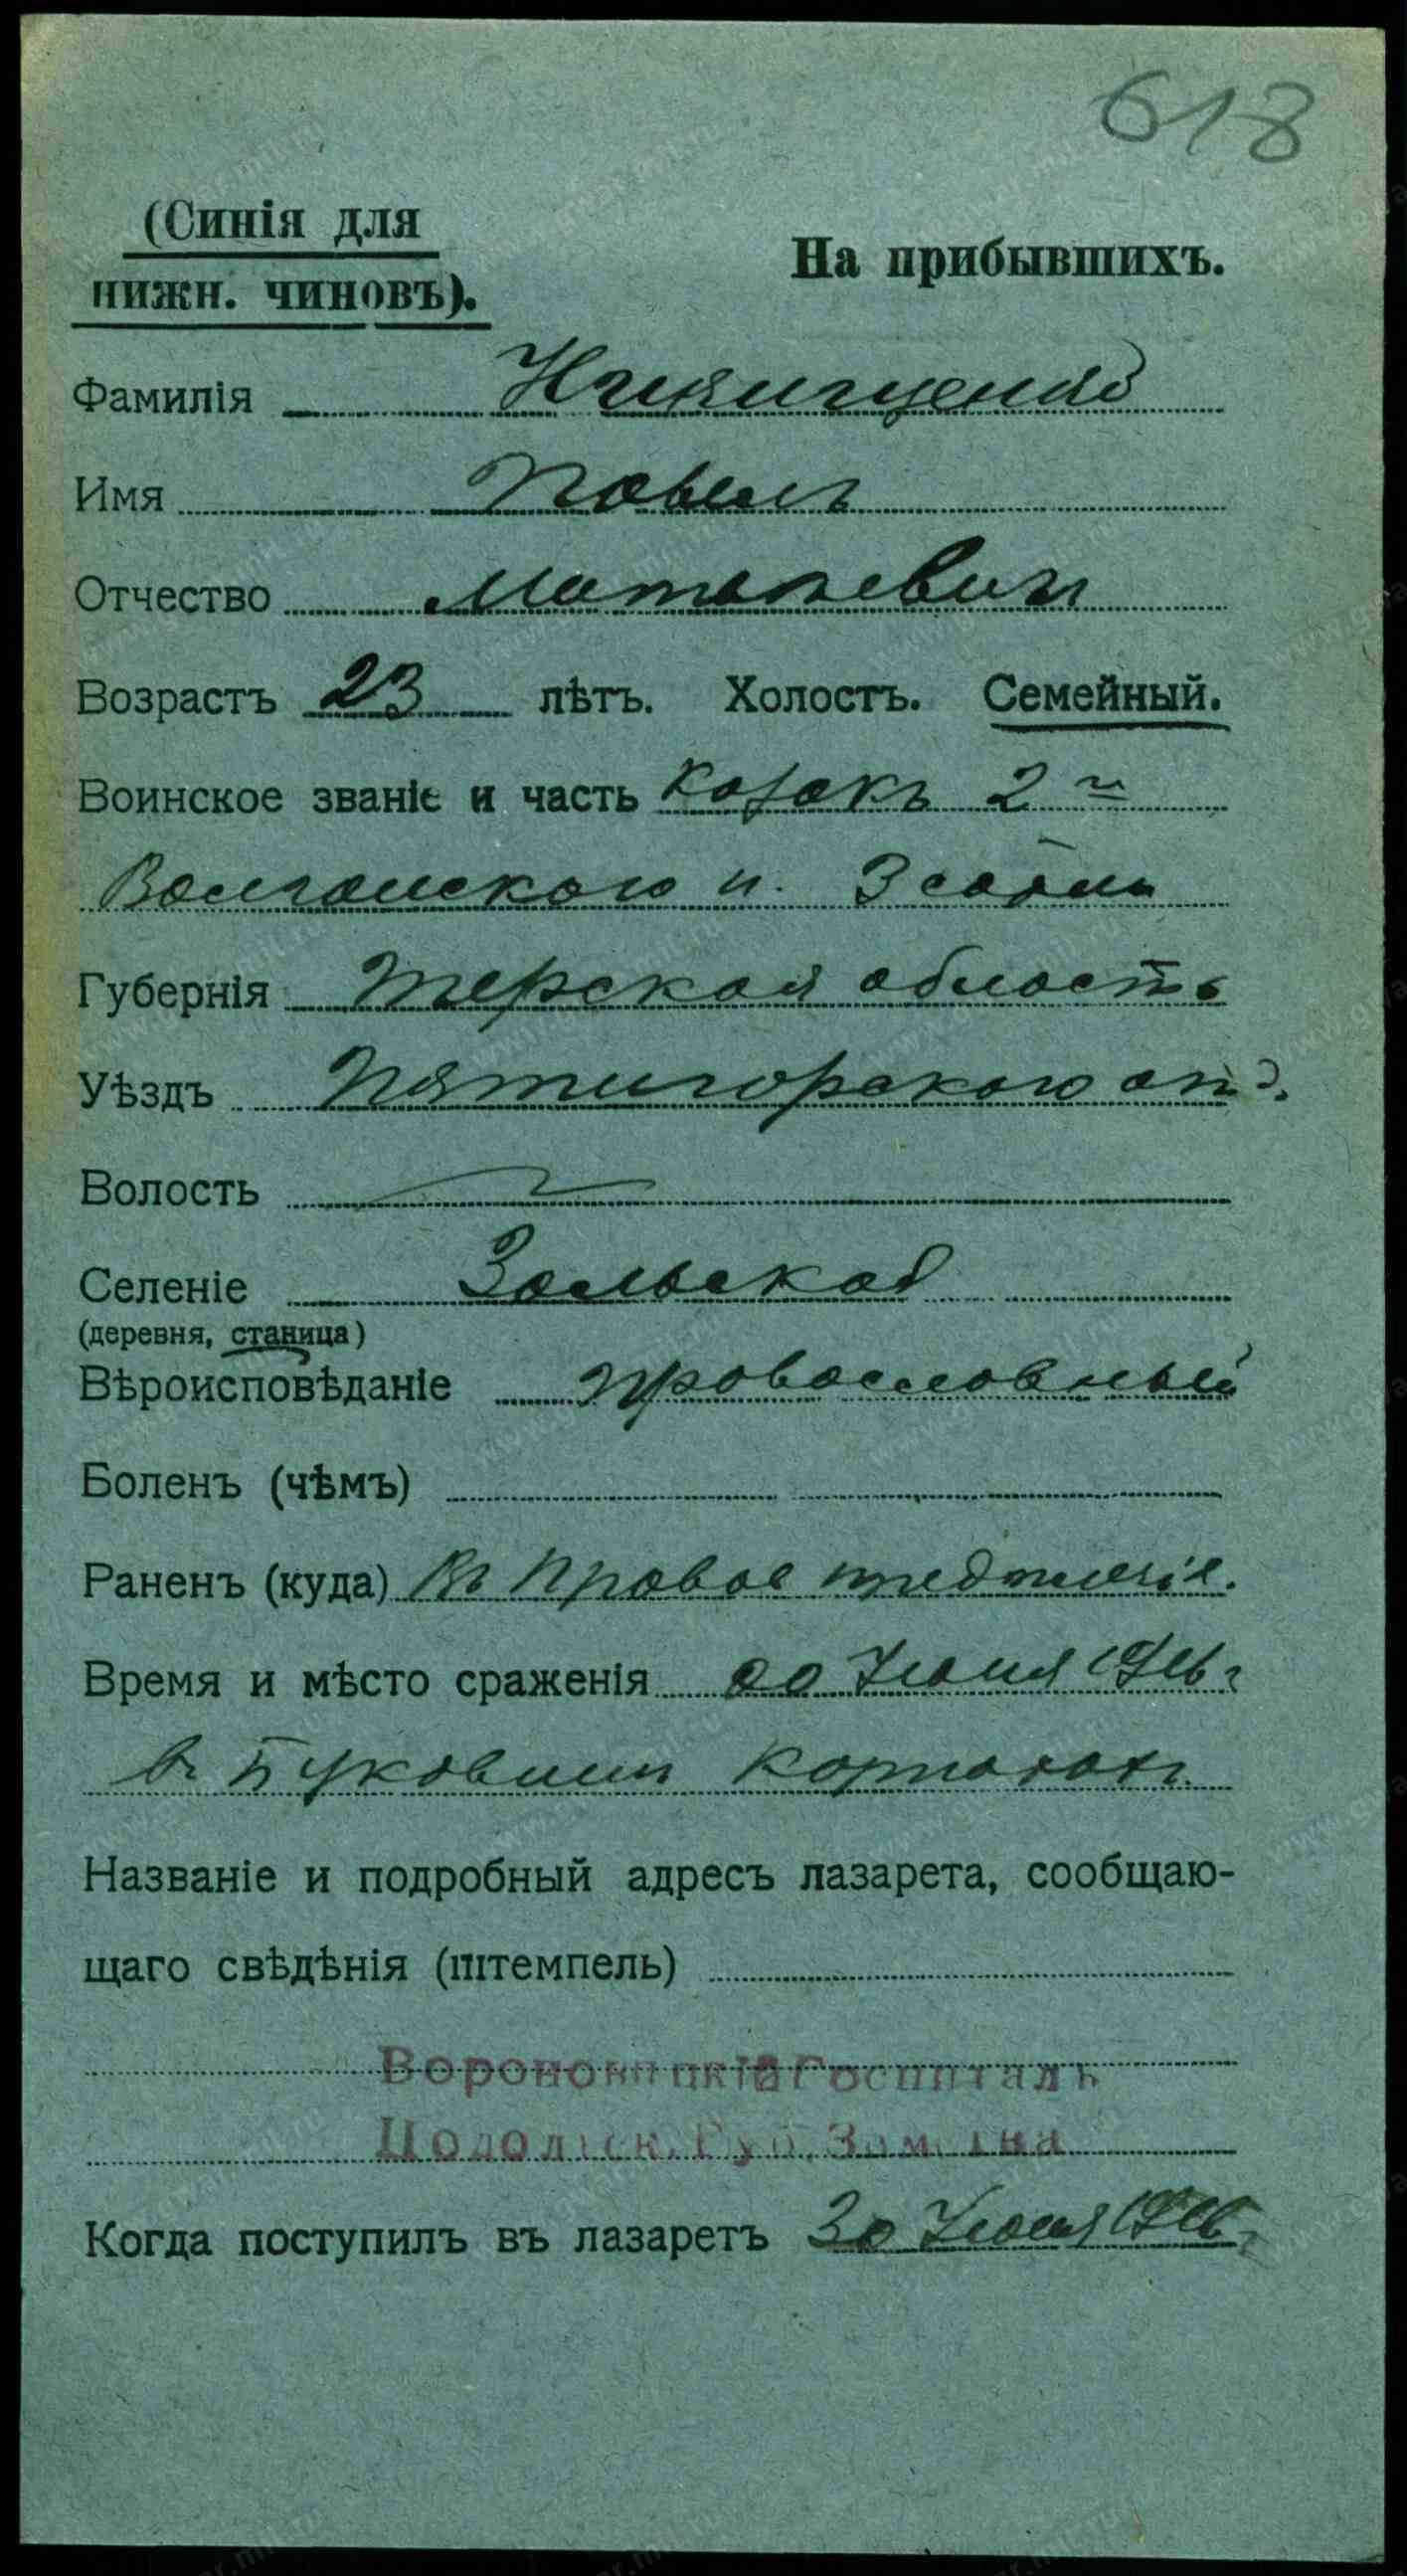 618
(Синія для
нижн. чиновъ).
На прибывшихъ.
Фамилія
Имя Павелъ
Отчество Матвѣевичъ
Возрастъ 23 лѣтъ. Холостъ. Семейный.
Воинское званіе и часть Козакъ 2го
Волгскаго п. 3 сотни
Губернія Терская область
Уѣздъ Пятигорскаго отд.
Волость
Селеніе Зольская
(деревня, станица)
Вѣроисповѣданіе православный
Боленъ (чѣмъ)
Раненъ (куда) Въ правое предплечіе.
Время и мѣсто сраженія 20 Іюня 1916 г
въ Буковинѣ Карпатахъ
Названіе и подробный адресъ лазарета, сообщаю-
щаго свѣдѣнія (штемпель)
Вороновицкій Госпиталь
Подольск. Губ. Земства
Когда поступилъ въ лазаретъ 30 Іюня 1916 г